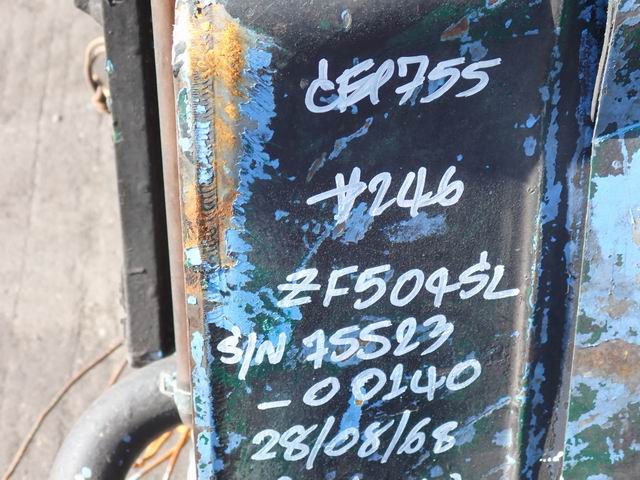 CEP755
#246
ZF504SL
S/N 75523
-00140
28/08/68